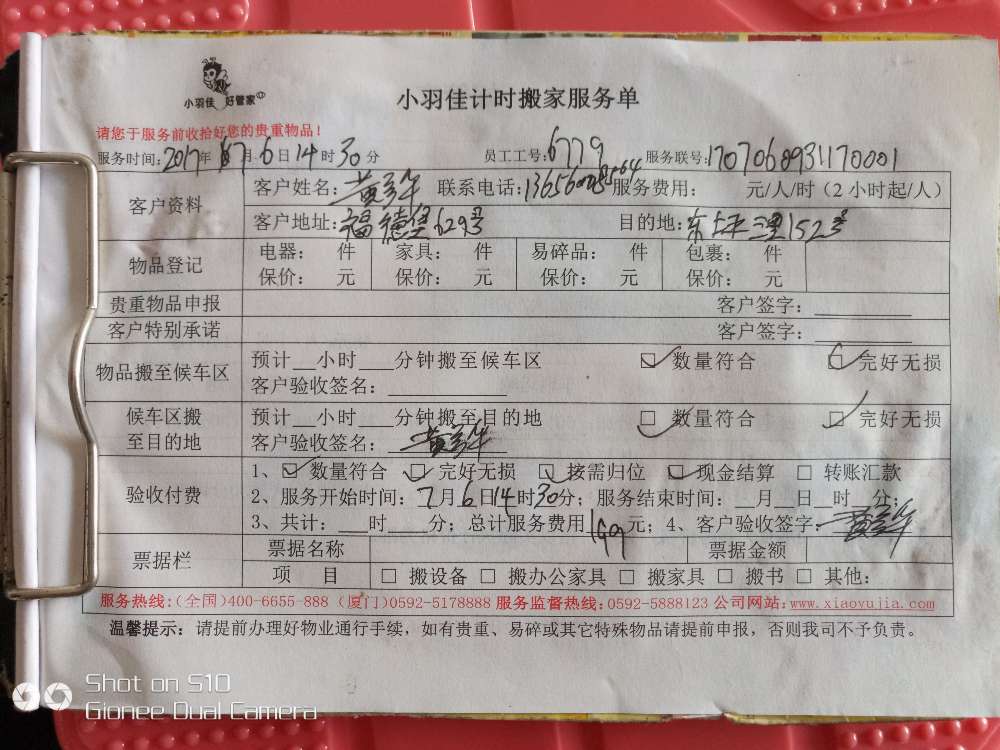 小羽佳 好管家
小羽佳计时搬家服务单
请您于服务前收拾好您的贵重物品！
服务时间：2017年7月6日14时30分 员工工号：6779 服务联号：1707060931170001
客户资料 客户姓名：黄 联系电话： 服务费用： 元/人/时（2小时起/人）
客户地址：福德堡629号 目的地：东坪里152号
物品登记 电器： 件 家具： 件 易碎品： 件 包裹： 件
保价： 元 保价： 元 保价： 元 保价： 元
贵重物品申报 客户签字：
客户特别承诺 客户签字：
物品搬至候车区 预计__小时___分钟搬至候车区 ☑ 数量符合 ☑ 完好无损
客户验收签名：
候车区搬至目的地 预计__小时___分钟搬至目的地 ☑ 数量符合 ☑ 完好无损
客户验收签名：黄
验收付费 1、☑ 数量符合 ☑ 完好无损 ☑ 按需归位 ☑ 现金结算 □ 转账汇款
2、服务开始时间：7月6日14时30分；服务结束时间：__月__日__时__分；
3、共计：___时___分；总计服务费用199元；4、客户验收签字：黄
票据栏 票据名称 票据金额
项 目 □ 搬设备 □ 搬办公家具 □ 搬家具 □ 搬书 □ 其他：
服务热线：（全国）400-6655-888（厦门）0592-5178888 服务监督热线：0592-5888123 公司网站：www.xiaoyujia.com
温馨提示：请提前办理好物业通行手续，如有贵重、易碎或其它特殊物品请提前申报，否则我司不予负责。
Shot on S10
Gionee Dual Camera